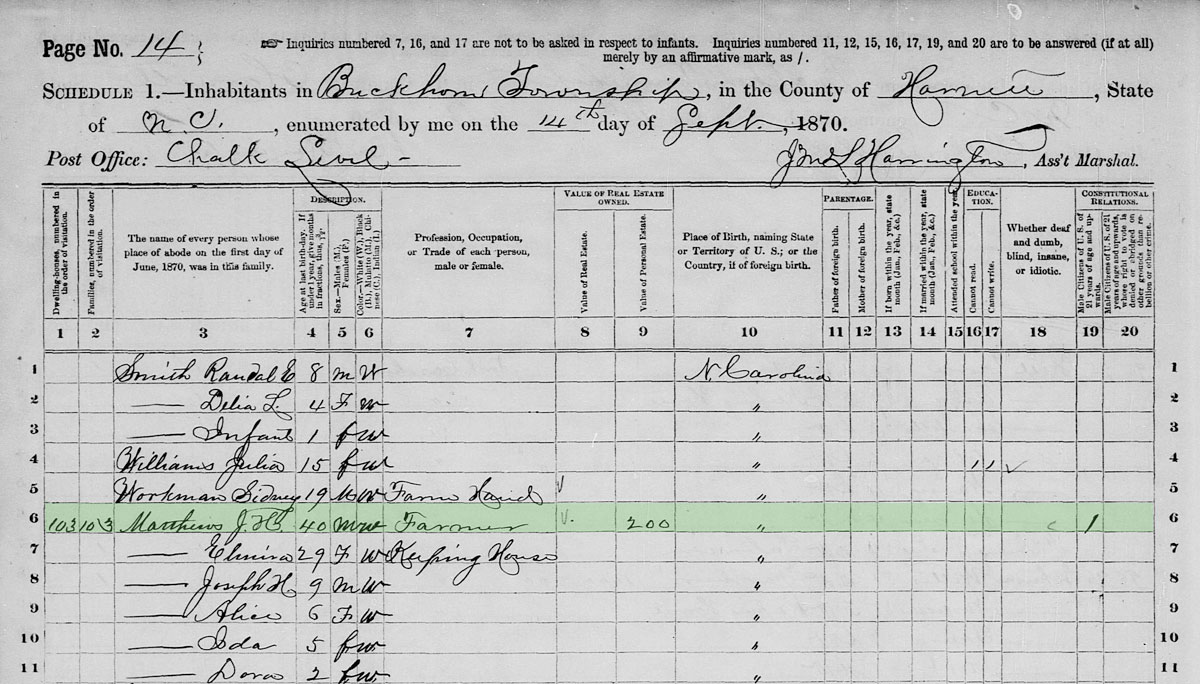 Page No. 14
☞ Inquiries numbered 7, 16, and 17 are not to be asked in respect to infants. Inquiries numbered 11, 12, 15, 16, 17, 19, and 20 are to be answered (if at all)
merely by an affirmative mark, as /.
SCHEDULE 1.—Inhabitants in Buckhorn Township, in the County of Harnett, State
of N.C., enumerated by me on the 14th day of Sept., 1870.
Post Office: Chalk Level – Jno S Harrington, Ass't Marshal.
Dwelling-houses, numbered in the order of visitation.
Families, numbered in the order of visitation.
The name of every person whose place of abode on the first day of June, 1870, was in this family.
DESCRIPTION.
Age at last birth-day. If under 1 year, give months in fractions, thus, 3/12
Sex.—Males (M.), Females (F.)
Color.—White (W.), Black (B.), Mulatto (M.), Chinese (C.), Indian (I.)
Profession, Occupation, or Trade of each person, male or female.
VALUE OF REAL ESTATE OWNED.
Value of Real Estate.
Value of Personal Estate.
Place of Birth, naming State or Territory of U. S.; or the Country, if of foreign birth.
PARENTAGE.
Father of foreign birth.
Mother of foreign birth.
If born within the year, state month (Jan., Feb., &c.)
If married within the year, state month (Jan., Feb., &c.)
Attended school within the year.
EDUCATION.
Cannot read.
Cannot write.
Whether deaf and dumb, blind, insane, or idiotic.
CONSTITUTIONAL RELATIONS.
Male Citizens of U. S. of 21 years of age and upwards.
Male Citizens of U. S. of 21 years of age and upwards, whose right to vote is denied or abridged on other grounds than rebellion or other crime.
1 2 3 4 5 6 7 8 9 10 11 12 13 14 15 16 17 18 19 20
1 Smith Randal E 8 m W N. Carolina 1
2 —— Delia L. 4 F w " 2
3 —— Infant 1 f w " 3
4 Williams Julia 15 f w " / / 4
5 Workman Sidney 19 M W Farm Hand " 5
6 103 103 Matthews J. H. 40 m w Farmer 200 " 1 6
7 —— Elmira 29 F W Keeping House " 7
8 —— Joseph H 9 m W " 8
9 —— Alice 6 F w " 9
10 —— Ida 5 f w " 10
11 —— Dora 2 f w " 11